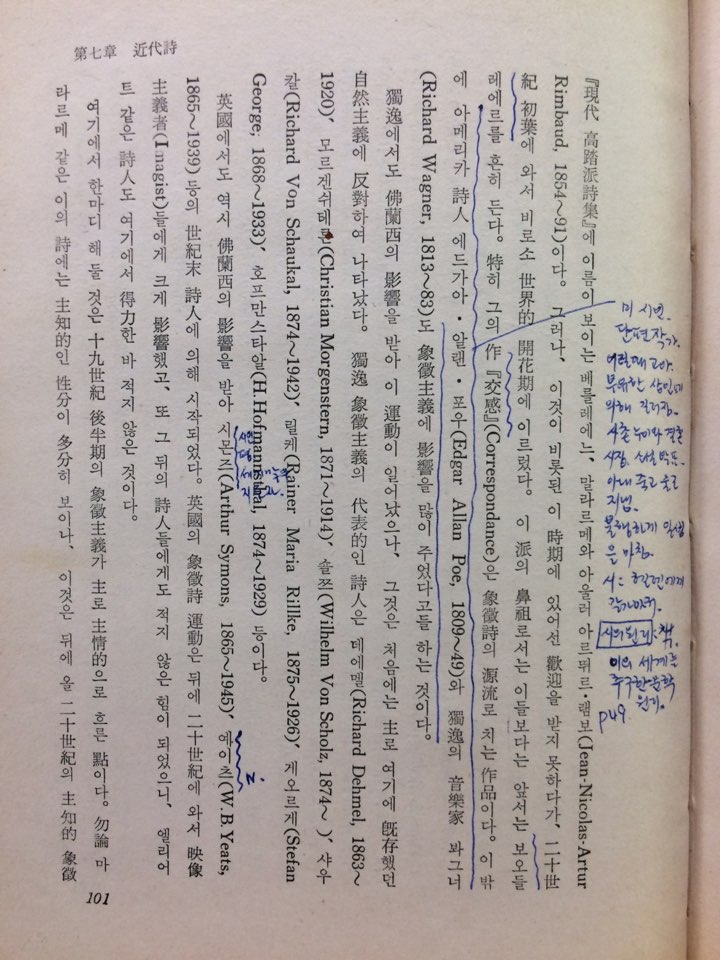 第七章 近代詩
『現代 高踏派詩集』에 이름이 보이는 베를레에느, 말라르메와 아울러 아르뛰르·램보(Jean-Nicolas-Artur
Rimbaud, 1854~91)이다. 그러나, 이것이 비롯된 이 時期에 있어선 歡迎을 받지 못하다가, 二十世
紀 初葉에 와서 비로소 世界的 開花期에 이르렀다. 이 派의 鼻祖로서는 이들보다는 앞서는 보오들
레에르를 흔히 든다. 特히 그의 作『交感』(Correspondance)은 象徵詩의 源流로 치는 作品이다. 이 밖
에 아메리카 詩人 에드가아·알랜·포우(Edgar Allan Poe, 1809~49)와 獨逸의 音樂家 와그너
(Richard Wagner, 1813~83)도 象徵主義에 影響을 많이 주었다고들 하는 것이다.
獨逸에서도 佛蘭西의 影響을 받아 이 運動이 일어났으나, 그것은 처음에는 主로 여기에 旣存했던
自然主義에 反對하여 나타났다. 獨逸 象徵主義의 代表的인 詩人은 데에멜(Richard Dehmel, 1863~
1920), 모르겐쉬테른(Christian Morgenstern, 1871~1914), 숄쯔(Wilhelm Von Scholz, 1874~ ), 샤아
칼(Richard Von Schaukal, 1874~1942), 릴케(Rainer Maria Rillke, 1875~1926), 게어르게(Stefan
George, 1868~1933), 호프만스타알(H. Hofmannsthal, 1874~1929) 등이다.
英國에서도 역시 佛蘭西의 影響을 받아 시몬즈(Arthur Symons, 1865~1945), 예이츠(W. B Yeats,
1865~1939) 등의 世紀末 詩人에 의해 시작되었다. 英國의 象徵詩 運動은 뒤에 二十世紀에 와서 映像
主義者(Imagist)들에게 크게 影響했고, 또 그 뒤의 詩人들에게도 적지 않은 힘이 되었으니, 엘리어
트 같은 詩人도 여기에서 得力한 바 적지 않은 것이다.
여기에서 한마디 해 둘 것은 十九世紀 後半期의 象徵主義가 主로 主情的으로 흐른 點이다. 勿論 마
라르메 같은 이의 詩에는 主知的인 性分이 多分히 보이나, 이것은 뒤에 올 二十世紀의 主知的 象徵
101
미 시인.
단편작가.
어릴때 고아.
부유한 상인에
의해 길러짐.
사촌누이와 결혼
시집, 소설 발표.
아내 죽고 술로
지냄.
불행하게 일생
은 마침.
시: 헬렌에게
갈가마귀.
시의 원리: 책.
미의 세계를
추구한 문학
원리.
p49.